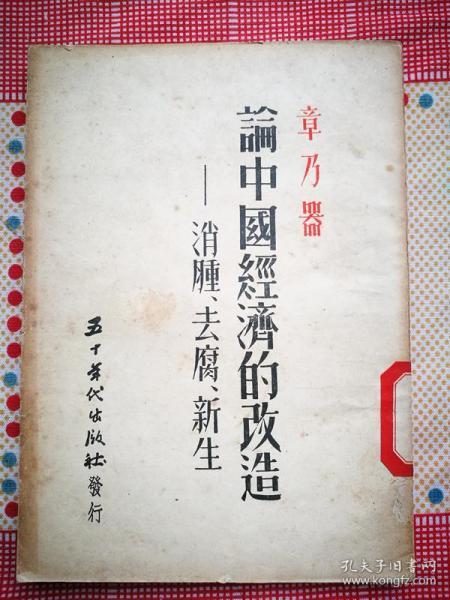 章乃器
論中國經濟的改造
——消腫、去腐、新生
五十年代出版社發行
孔夫子旧书网
www.kongfz.com